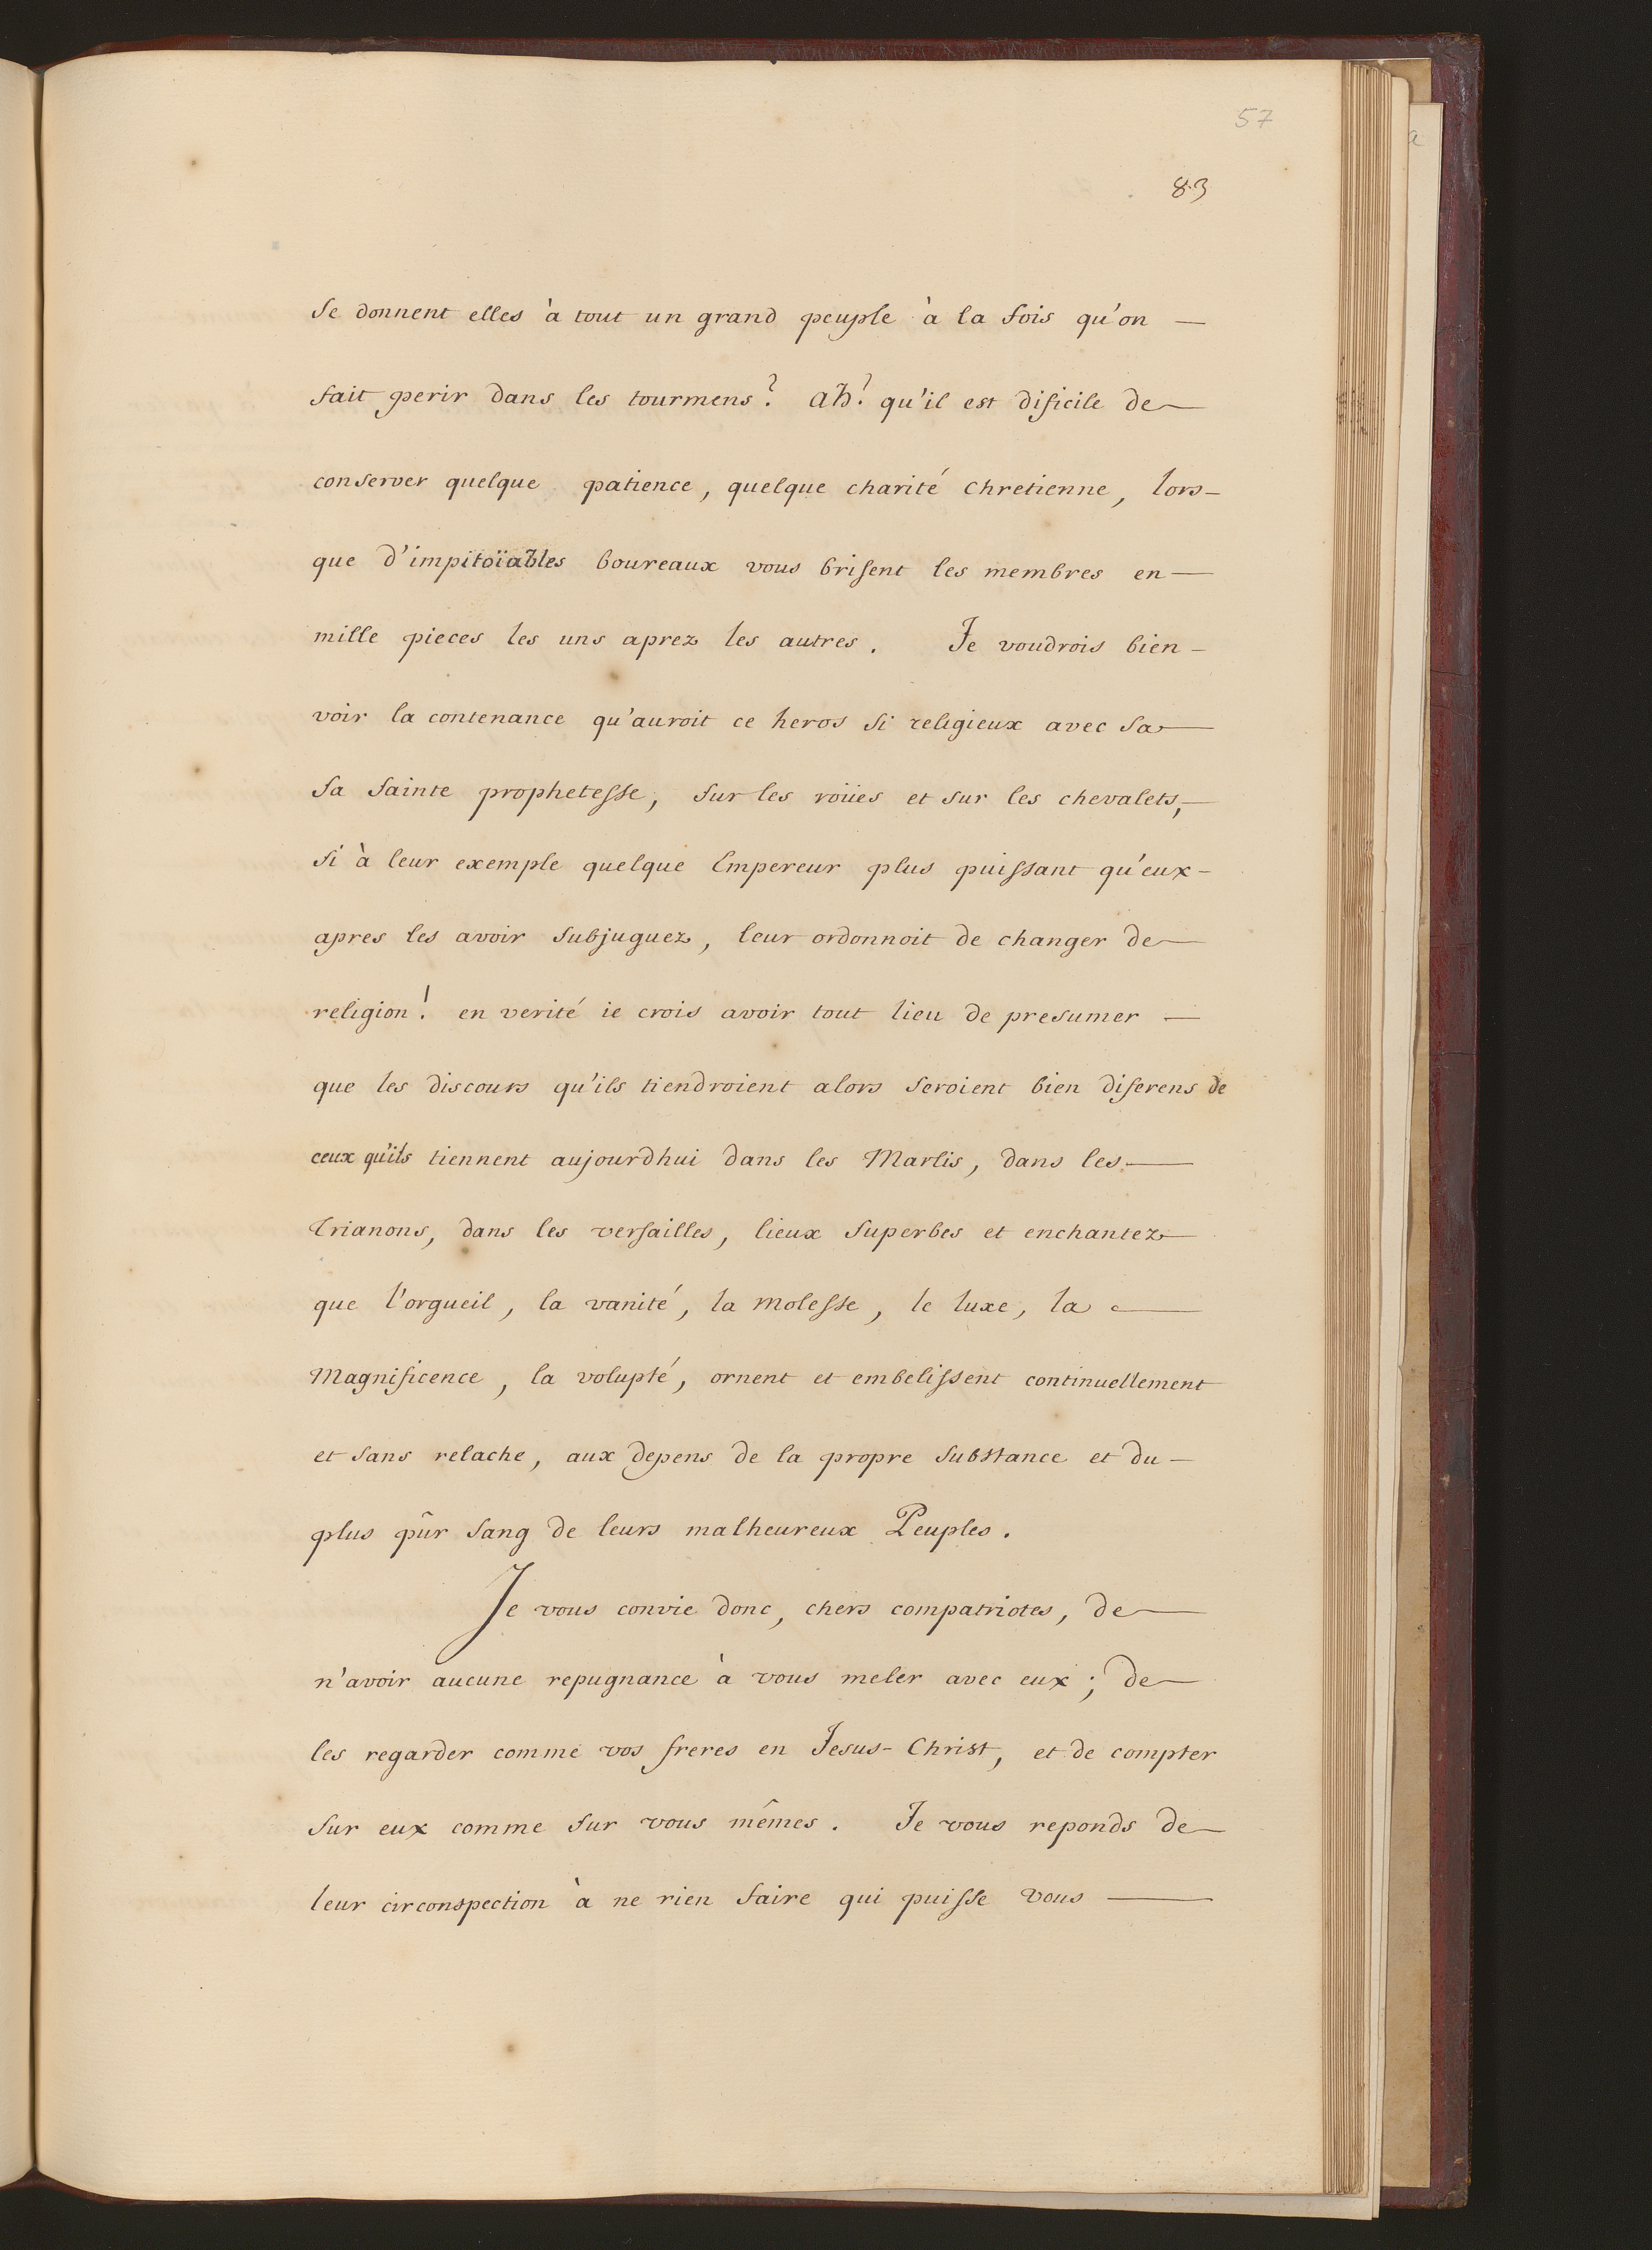 57
83
se donnent elles à tout un grand peuple à la fois qu'on —
fait perir dans les tourmens? ah! qu'il est dificile de —
conserver quelque patience, quelque charité chretienne, lors-
que d'impitoïables boureaux vous brisent les membres en —
mille pieces les uns aprez les autres. Je voudrois bien —
voir la contenance qu'auroit ce heros si religieux avec sa —
sa sainte prophetesse, sur les roües et sur les chevalets, —
si à leur exemple quelque Empereur plus puissant qu'eux —
apres les avoir subjuguez, leur ordonnoit de changer de —
religion! en verité ie crois avoir tout lieu de presumer —
que les discours qu'ils tiendroient alors seroient bien diferens de
ceux qu'ils tiennent aujourdhui dans les Marlis, dans les —
Trianons, dans les versailles, lieux superbes et enchantez —
que l'orgueil, la vanité, la molesse, le luxe, la —
Magnificence, la volupté, ornent et embelissent continuellement
et sans relache, aux depens de la propre substance et du —
plus pûr sang de leurs malheureux Peuples.
Je vous convie donc, chers compatriotes, de —
n'avoir aucune repugnance à vous meler avec eux; de —
les regarder comme vos freres en Jesus-Christ, et de compter
sur eux comme sur vous mêmes. Je vous reponds de —
leur circonspection à ne rien faire qui puisse vous —